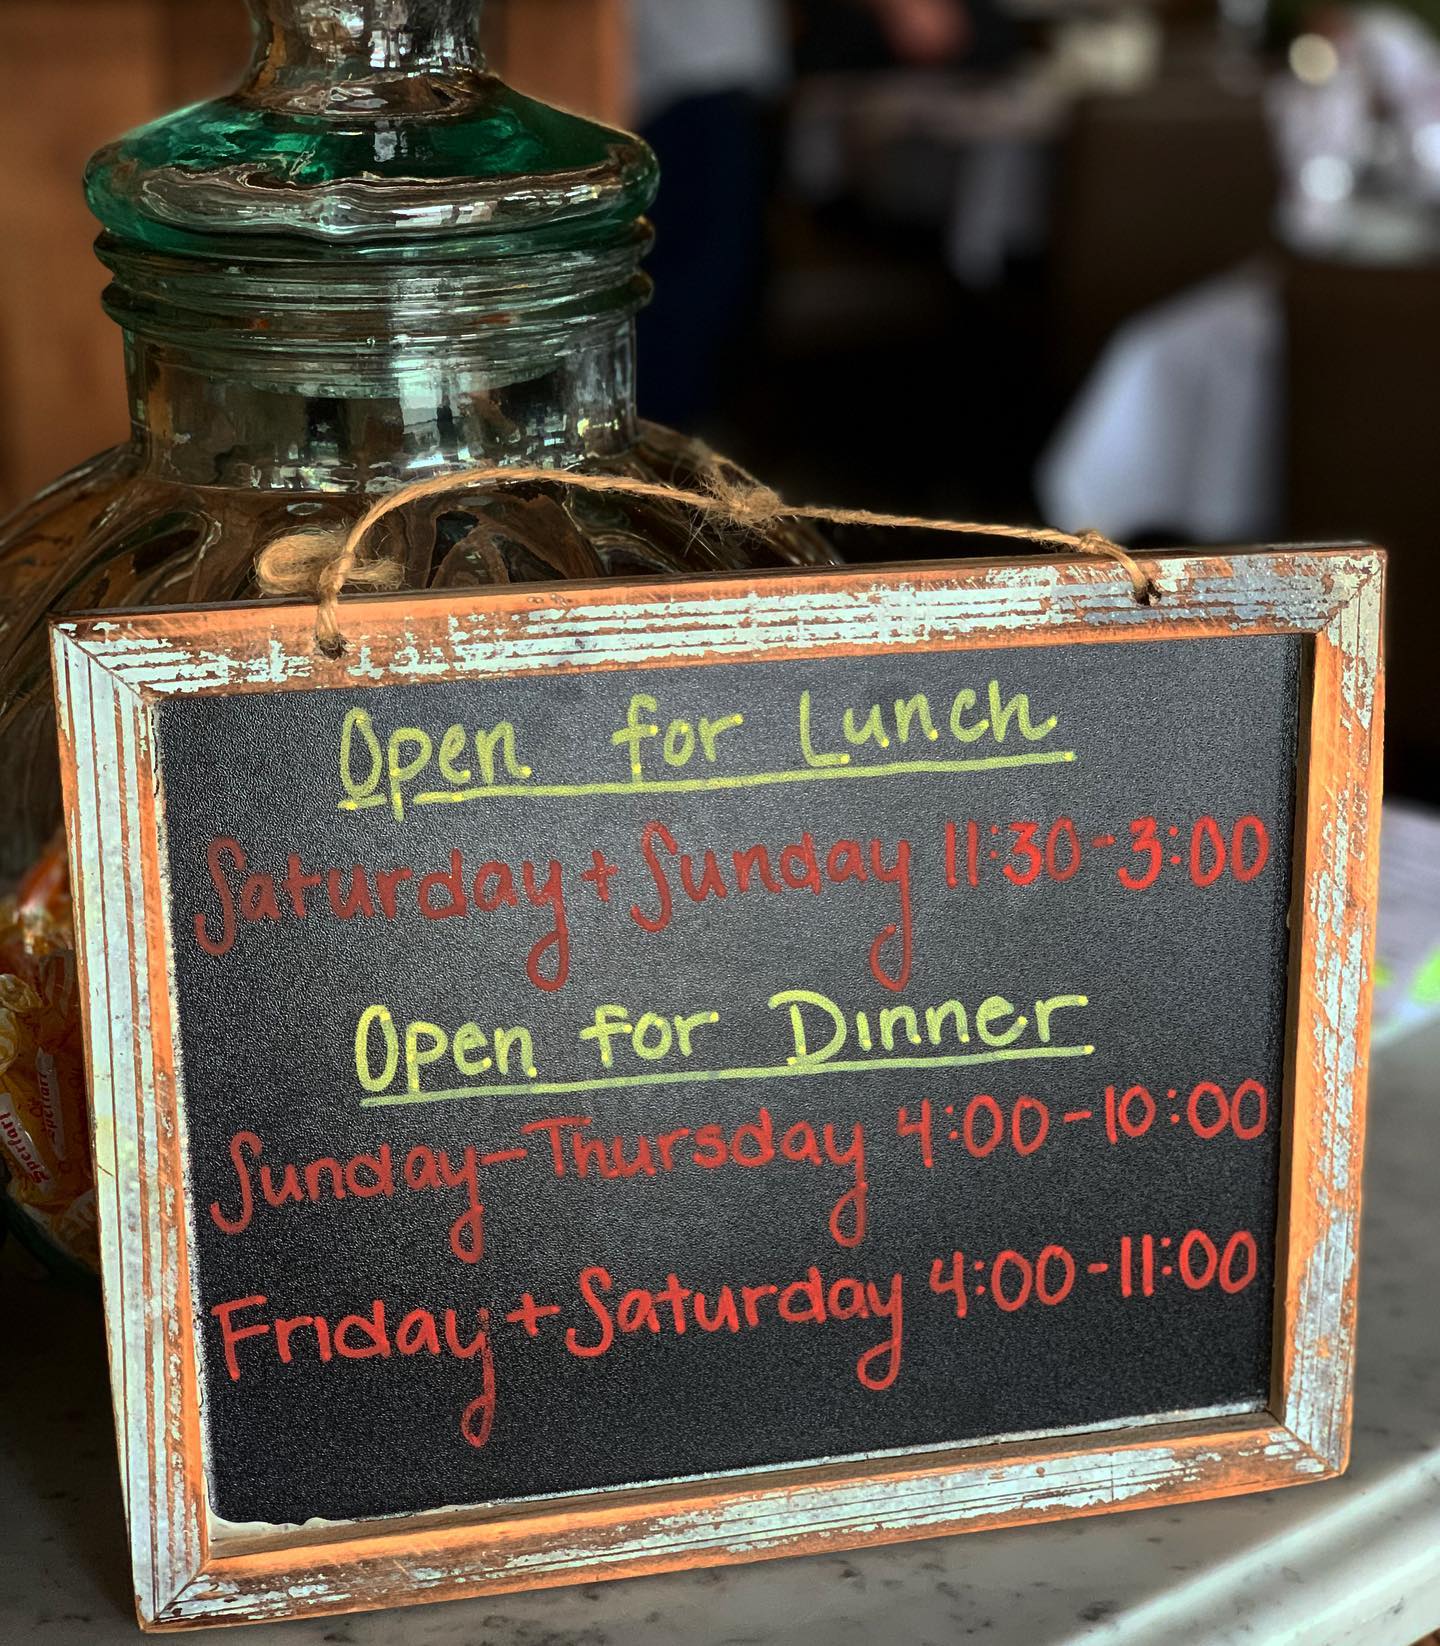 Open for Lunch
Saturday + Sunday 11:30-3:00
Open for Dinner
Sunday-Thursday 4:00-10:00
Friday + Saturday 4:00-11:00